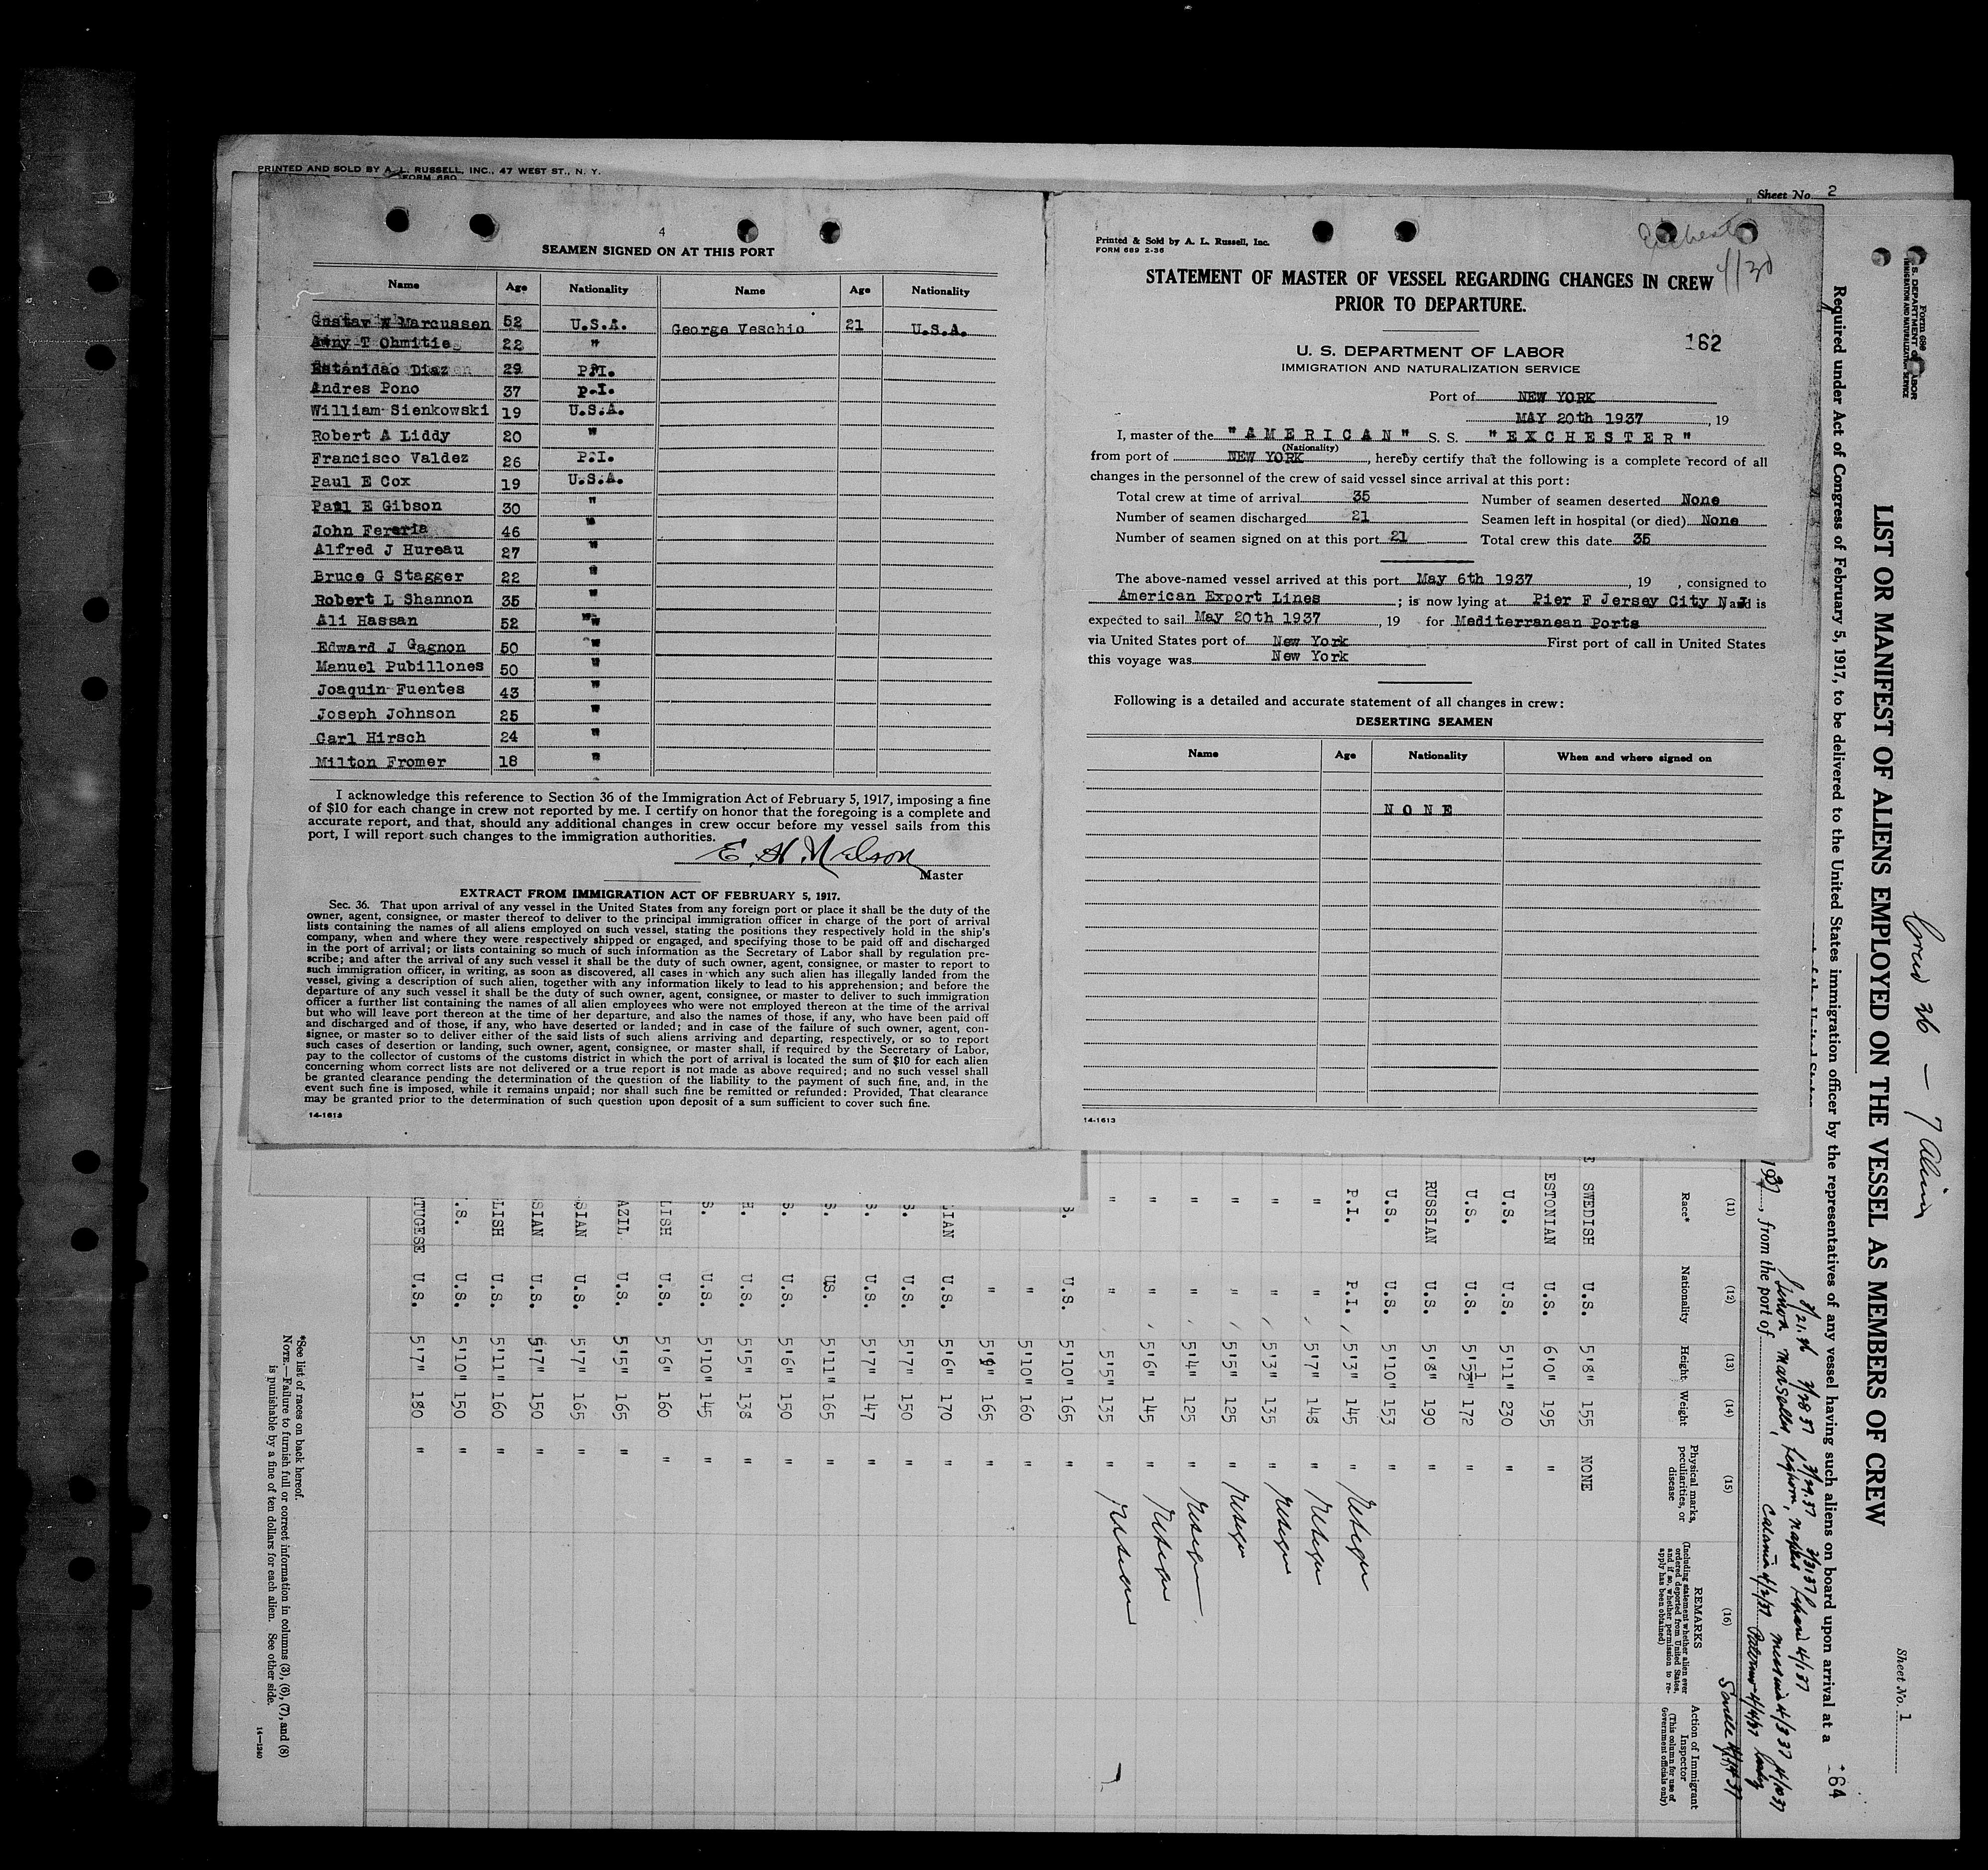 PRINTED AND SOLD BY A. L. RUSSELL, INC., 47 WEST ST., N. Y.
FORM 680
4
SEAMEN SIGNED ON AT THIS PORT
Name Age Nationality Name Age Nationality
Gustav N Marcussen 52 U.S.A. George Veschio 21 U.S.A.
T Ohmitie 22 "
Estanidao Diaz 29 P.I.
Andres Pono 37 P.I.
William Sienkowski 19 U.S.A.
Robert A Liddy 20 "
Francisco Valdez 26 P.I.
Paul E Cox 19 U.S.A.
Paul E Gibson 30 "
John Fereria 46 "
Alfred J Hureau 27 "
Bruce G Stagger 22 "
Robert L Shannon 35 "
Ali Hassan 52 "
Edward J Gagnon 50 "
Manuel Pubillones 50 "
Joaquin Fuentes 43 "
Joseph Johnson 25 "
Carl Hirsch 24 "
Milton Fromer 18 "
I acknowledge this reference to Section 36 of the Immigration Act of February 5, 1917, imposing a fine
of $10 for each change in crew not reported by me. I certify on honor that the foregoing is a complete and
accurate report, and that, should any additional changes in crew occur before my vessel sails from this
port, I will report such changes to the immigration authorities.
E. H. Nelson
Master
EXTRACT FROM IMMIGRATION ACT OF FEBRUARY 5, 1917.
Sec. 36. That upon arrival of any vessel in the United States from any foreign port or place it shall be the duty of the
owner, agent, consignee, or master thereof to deliver to the principal immigration officer in charge of the port of arrival
lists containing the names of all aliens employed on such vessel, stating the positions they respectively hold in the ship's
company, when and where they were respectively shipped or engaged, and specifying those to be paid off and discharged
in the port of arrival; or lists containing so much of such information as the Secretary of Labor shall by regulation pre-
scribe; and after the arrival of any such vessel it shall be the duty of such owner, agent, consignee, or master to report to
such immigration officer, in writing, as soon as discovered, all cases in which any such alien has illegally landed from the
vessel, giving a description of such alien, together with any information likely to lead to his apprehension; and before the
departure of any such vessel it shall be the duty of such owner, agent, consignee, or master to deliver to such immigration
officer a further list containing the names of all alien employees who were not employed thereon at the time of the arrival
but who will leave port thereon at the time of her departure, and also the names of those, if any, who have been paid off
and discharged and of those, if any, who have deserted or landed; and in case of the failure of such owner, agent, con-
signee, or master so to deliver either of the said lists of such aliens arriving and departing, respectively, or so to report
such cases of desertion or landing, such owner, agent, consignee, or master shall, if required by the Secretary of Labor,
pay to the collector of customs of the customs district in which the port of arrival is located the sum of $10 for each alien
concerning whom correct lists are not delivered or a true report is not made as above required; and no such vessel shall
be granted clearance pending the determination of the question of the liability to the payment of such fine, and, in the
event such fine is imposed, while it remains unpaid; nor shall such fine be remitted or refunded: Provided, That clearance
may be granted prior to the determination of such question upon deposit of a sum sufficient to cover such fine.
14-1613
Sheet No. 2
Printed & Sold by A. L. Russell, Inc.
FORM 689 2-36
Exchester
STATEMENT OF MASTER OF VESSEL REGARDING CHANGES IN CREW
PRIOR TO DEPARTURE.
162
U. S. DEPARTMENT OF LABOR
IMMIGRATION AND NATURALIZATION SERVICE
Port of NEW YORK
MAY 20th 1937, 19
I, master of the "AMERICAN" S. S. "EXCHESTER"
(Nationality)
from port of NEW YORK, hereby certify that the following is a complete record of all
changes in the personnel of the crew of said vessel since arrival at this port:
Total crew at time of arrival 35 Number of seamen deserted None
Number of seamen discharged 21 Seamen left in hospital (or died) None
Number of seamen signed on at this port 21 Total crew this date 35
The above-named vessel arrived at this port May 6th 1937, 19 , consigned to
American Export Lines; is now lying at Pier F Jersey City N J and is
expected to sail May 20th 1937, 19 for Mediterranean Ports
via United States port of New York First port of call in United States
this voyage was New York
Following is a detailed and accurate statement of all changes in crew:
DESERTING SEAMEN
Name Age Nationality When and where signed on
NONE
14-1613
Form 680
U. S. DEPARTMENT OF LABOR
IMMIGRATION AND NATURALIZATION SERVICE
Sheet No. 1
Crew 36 — 7 Aliens
LIST OR MANIFEST OF ALIENS EMPLOYED ON THE VESSEL AS MEMBERS OF CREW
164
Required under Act of Congress of February 5, 1917, to be delivered to the United States immigration officer by the representatives of any vessel having such aliens on board upon arrival at a
1937, from the port of
Genoa Marseilles, Leghorn, Naples
Catania 4/2/37 Palermo 4/4/37
(11) (12) (13) (14) (15) (16)
Race* Nationality Height Weight Physical marks, peculiarities, or disease REMARKS (Including statement whether alien ever ordered deported from United States, and if so, whether permission to re-apply has been obtained) Action of Immigrant Inspector (This column for use of Government officials only)
SWEDISH U.S. 5'8" 155 NONE
ESTONIAN U.S. 6'0" 195 "
U.S. U.S. 5'11" 230 "
U.S. U.S. 5'5½" 172 "
RUSSIAN U.S. 5'8" 190 "
U.S. U.S. 5'10" 153 "
P.I. P.I. 5'3" 145 "
" " 5'7" 148 "
" " 5'3" 135 "
" " 5'5" 125 "
" " 5'4" 125 "
" " 5'6" 145 "
" " 5'5" 135 "
S. U.S. 5'10" 165 "
" 5'10" 160 "
" 5'9" 165 "
LIAN U.S. 5'6" 170 "
S. U.S. 5'7" 150 "
S. U.S. 5'7" 147 "
S. US. 5'11" 165 "
S. U.S. 5'6" 150 "
R. U.S. 5'5" 138 "
S. U.S. 5'10" 145 "
LISH U.S. 5'6" 160 "
AZIL U.S. 5'5" 165 "
SIAN U.S. 5'7" 165 "
SIAN U.S. 5'7" 150 "
LISH U.S. 5'11" 160 "
.S. U.S. 5'10" 150 "
TUGESE U.S. 5'7" 180 "
*See list of races on back hereof.
NOTE.—Failure to furnish full or correct information in columns (3), (6), (7), and (8)
is punishable by a fine of ten dollars for each alien. See other side.
14—1240